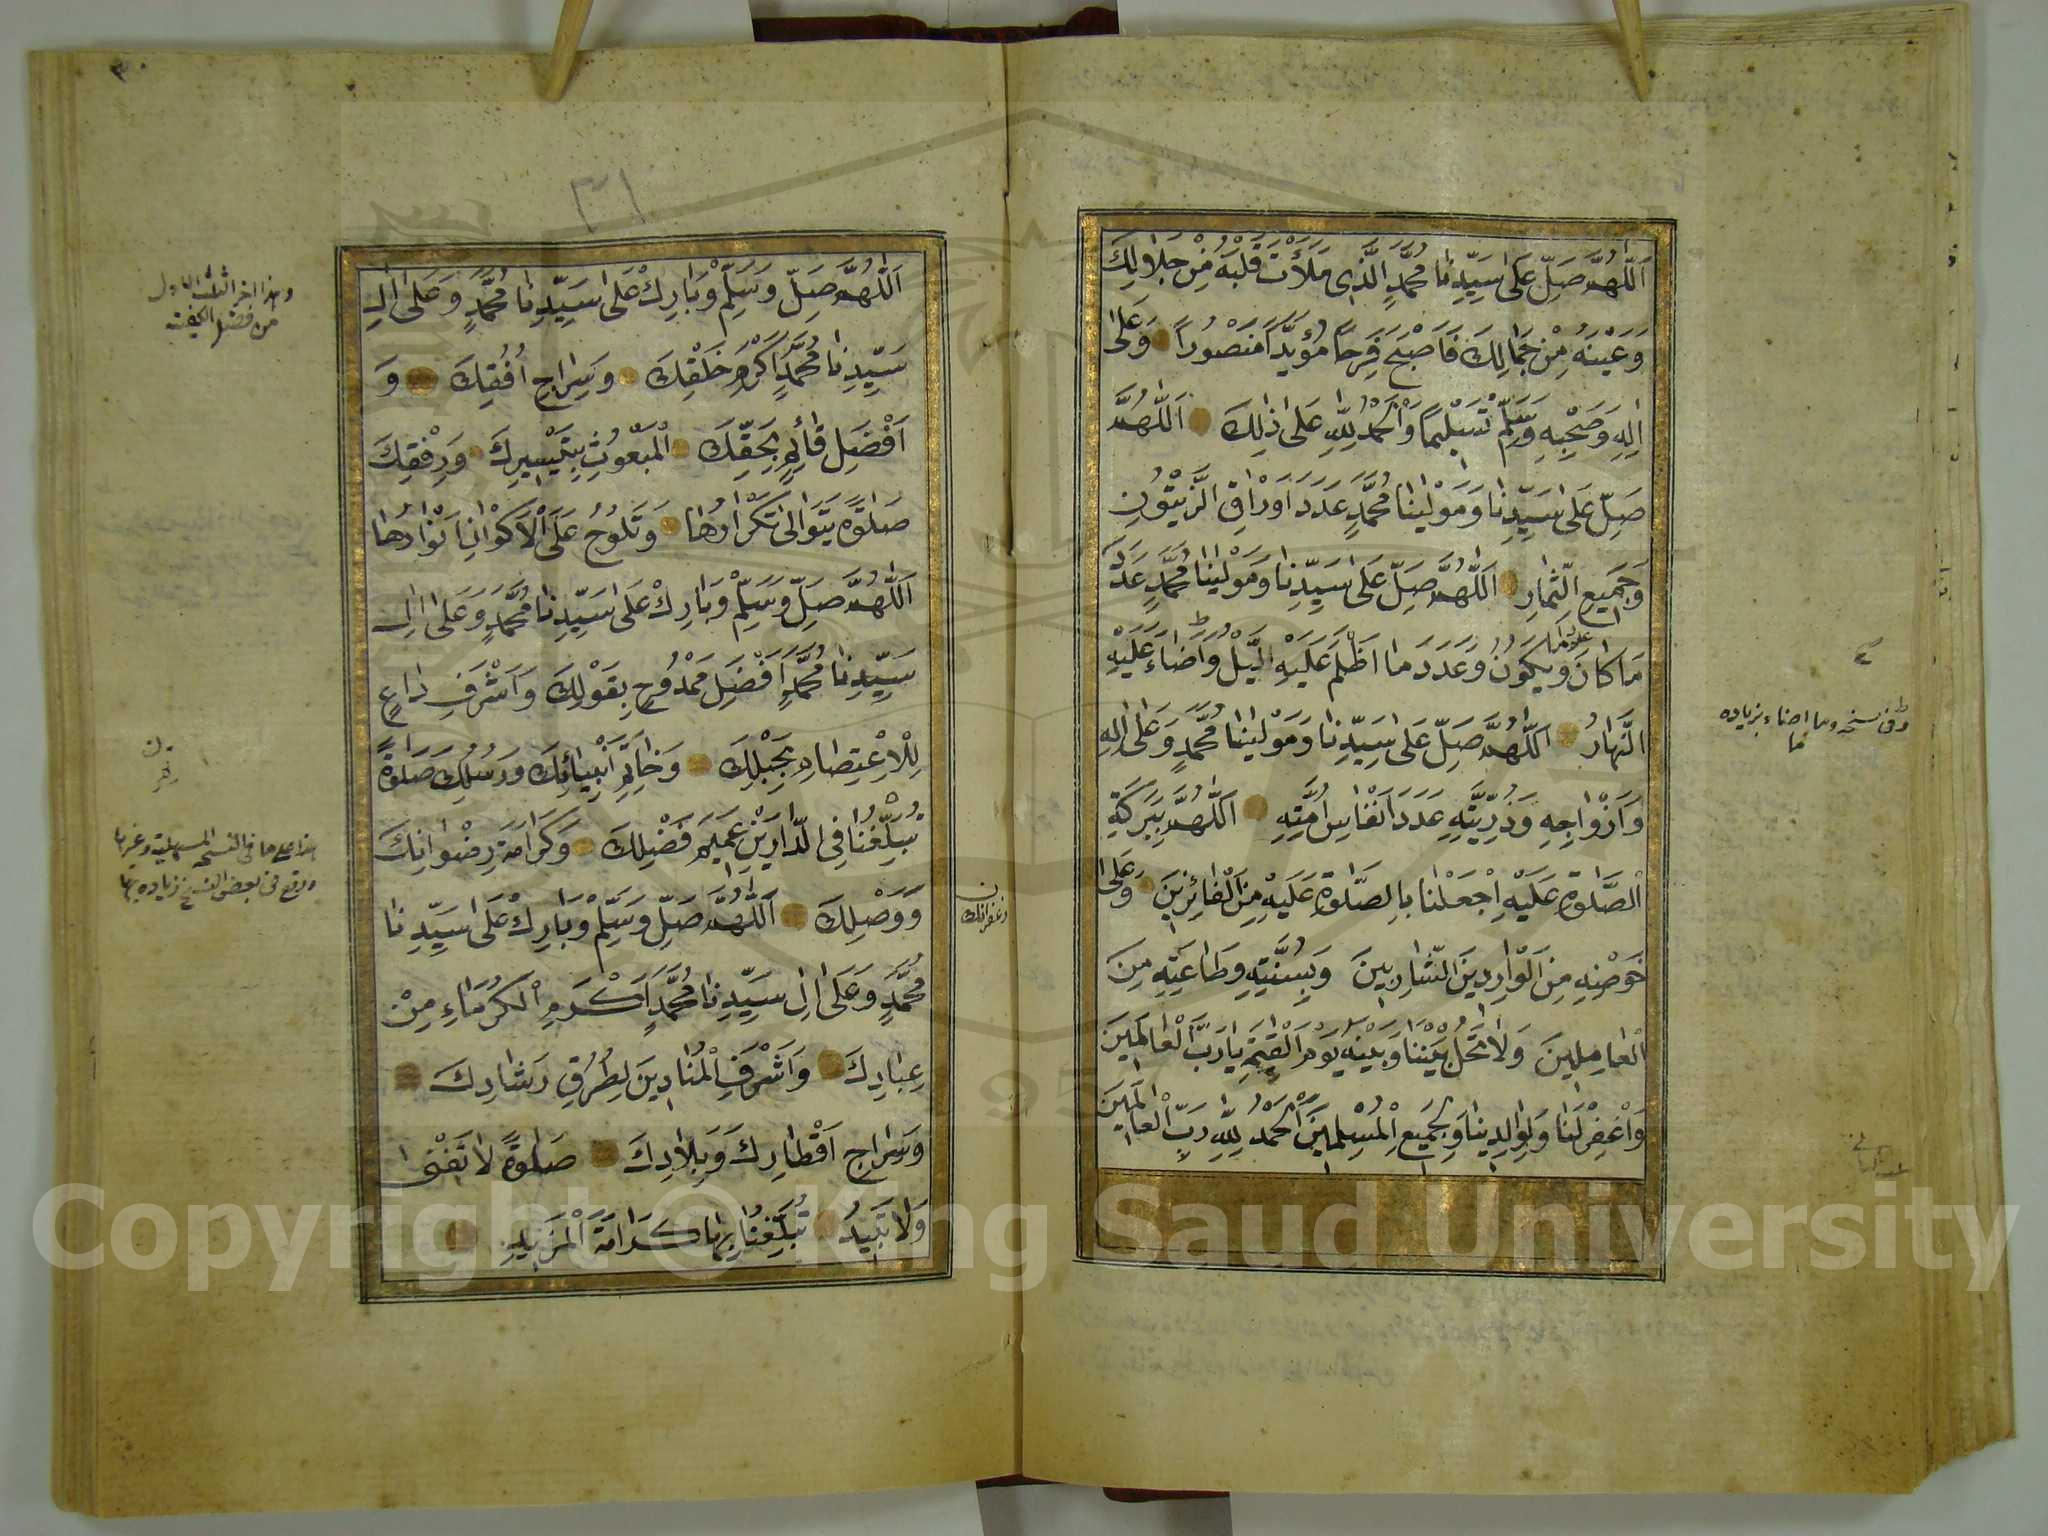 اَللّٰهُمَّ صَلِّ عَلٰى سَيِّدِنَا مُحَمَّدٍ الَّذِى مَلَأْتَ قَلْبَهُ مِنْ جَلَالِكَ
وَعَيْنَهُ مِنْ جَمَالِكَ فَاَصْبَحَ فَرِحًا مُؤَيَّدًا مَنْصُورًا وَعَلٰى
اٰلِهِ وَصَحْبِهِ وَسَلِّمْ تَسْلِيمًا وَالْحَمْدُ لِلّٰهِ عَلٰى ذٰلِكَ اَللّٰهُمَّ
صَلِّ عَلٰى سَيِّدِنَا وَمَوْلٰينَا مُحَمَّدٍ عَدَدَ اَوْرَاقِ الزَّيْتُونِ
وَجَمِيعِ الثِّمَارِ اَللّٰهُمَّ صَلِّ عَلٰى سَيِّدِنَا وَمَوْلٰينَا مُحَمَّدٍ عَدَدَ
مَا كَانَ وَيَكُونُ وَعَدَدَ مَا اَظْلَمَ عَلَيْهِ الَّيْلُ وَاَضَاءَ عَلَيْهِ
النَّهَارُ اَللّٰهُمَّ صَلِّ عَلٰى سَيِّدِنَا وَمَوْلٰينَا مُحَمَّدٍ وَعَلٰى اٰلِهِ
وَاَزْوَاجِهِ وَذُرِّيَّتِهِ عَدَدَ اَنْفَاسِ اُمَّتِهِ اَللّٰهُمَّ بِبَرَكَةِ
الصَّلٰوةِ عَلَيْهِ اِجْعَلْنَا بِالصَّلٰوةِ عَلَيْهِ مِنَ الْفَائِزِينَ وَعَلٰى
حَوْضِهِ مِنَ الْوَارِدِينَ الشَّارِبِينَ وَبِسُنَّتِهِ وَطَاعَتِهِ مِنَ
الْعَامِلِينَ وَلَا تَحُلْ بَيْنَنَا وَبَيْنَهُ يَوْمَ الْقِيٰمَةِ يَا رَبَّ الْعَالَمِينَ
وَاغْفِرْ لَنَا وَلِوَالِدِينَا وَلِجَمِيعِ الْمُسْلِمِينَ اَلْحَمْدُ لِلّٰهِ رَبِّ الْعَالَمِينَ
وفى نسخة وما اضاء بزيادة
ما
٣٠
٣١
اَللّٰهُمَّ صَلِّ وَسَلِّمْ وَبَارِكْ عَلٰى سَيِّدِنَا مُحَمَّدٍ وَعَلٰى اٰلِ
سَيِّدِنَا مُحَمَّدٍ اَكْرَمِ خَلْقِكَ وَسِرَاجِ اُفُقِكَ وَ
اَفْضَلِ قَائِمٍ بِحَقِّكَ الْمَبْعُوثِ بِتَيْسِيرِكَ وَرِفْقِكَ
صَلٰوةً يَتَوَالٰى تَكْرَارُهَا وَتَلُوحُ عَلَى الْاَكْوَانِ اَنْوَارُهَا
اَللّٰهُمَّ صَلِّ وَسَلِّمْ وَبَارِكْ عَلٰى سَيِّدِنَا مُحَمَّدٍ وَعَلٰى اٰلِ
سَيِّدِنَا مُحَمَّدٍ اَفْضَلِ مَمْدُوحٍ بِقَوْلِكَ وَاَشْرَفِ دَاعٍ
لِلْاِعْتِصَامِ بِحَبْلِكَ وَخَاتَمِ اَنْبِيَائِكَ وَرُسُلِكَ صَلٰوةً
تُبَلِّغُنَا فِى الدَّارَيْنِ عَمِيمَ فَضْلِكَ وَكَرَامَةَ رِضْوَانِكَ
وَوَصْلِكَ اَللّٰهُمَّ صَلِّ وَسَلِّمْ وَبَارِكْ عَلٰى سَيِّدِنَا
مُحَمَّدٍ وَعَلٰى اٰلِ سَيِّدِنَا مُحَمَّدٍ اَكْرَمِ الْكُرَمَاءِ مِنْ
عِبَادِكَ وَاَشْرَفِ الْمُنَادِينَ لِطُرُقِ رَشَادِكَ
وَسِرَاجِ اَقْطَارِكَ وَبِلَادِكَ صَلٰوةً لَا تَفْنٰى
وَلَا تَبِيدُ تُبَلِّغُنَا بِهَا كَرَامَةَ الْمَزِيدِ
وهذا اخر الثلث الاول
من فضل الكيفية
هذا على ما فى النسخة السهلية وغيرها
ووقع فى بعض النسخ زيادة
Copyright © King Saud University
1957